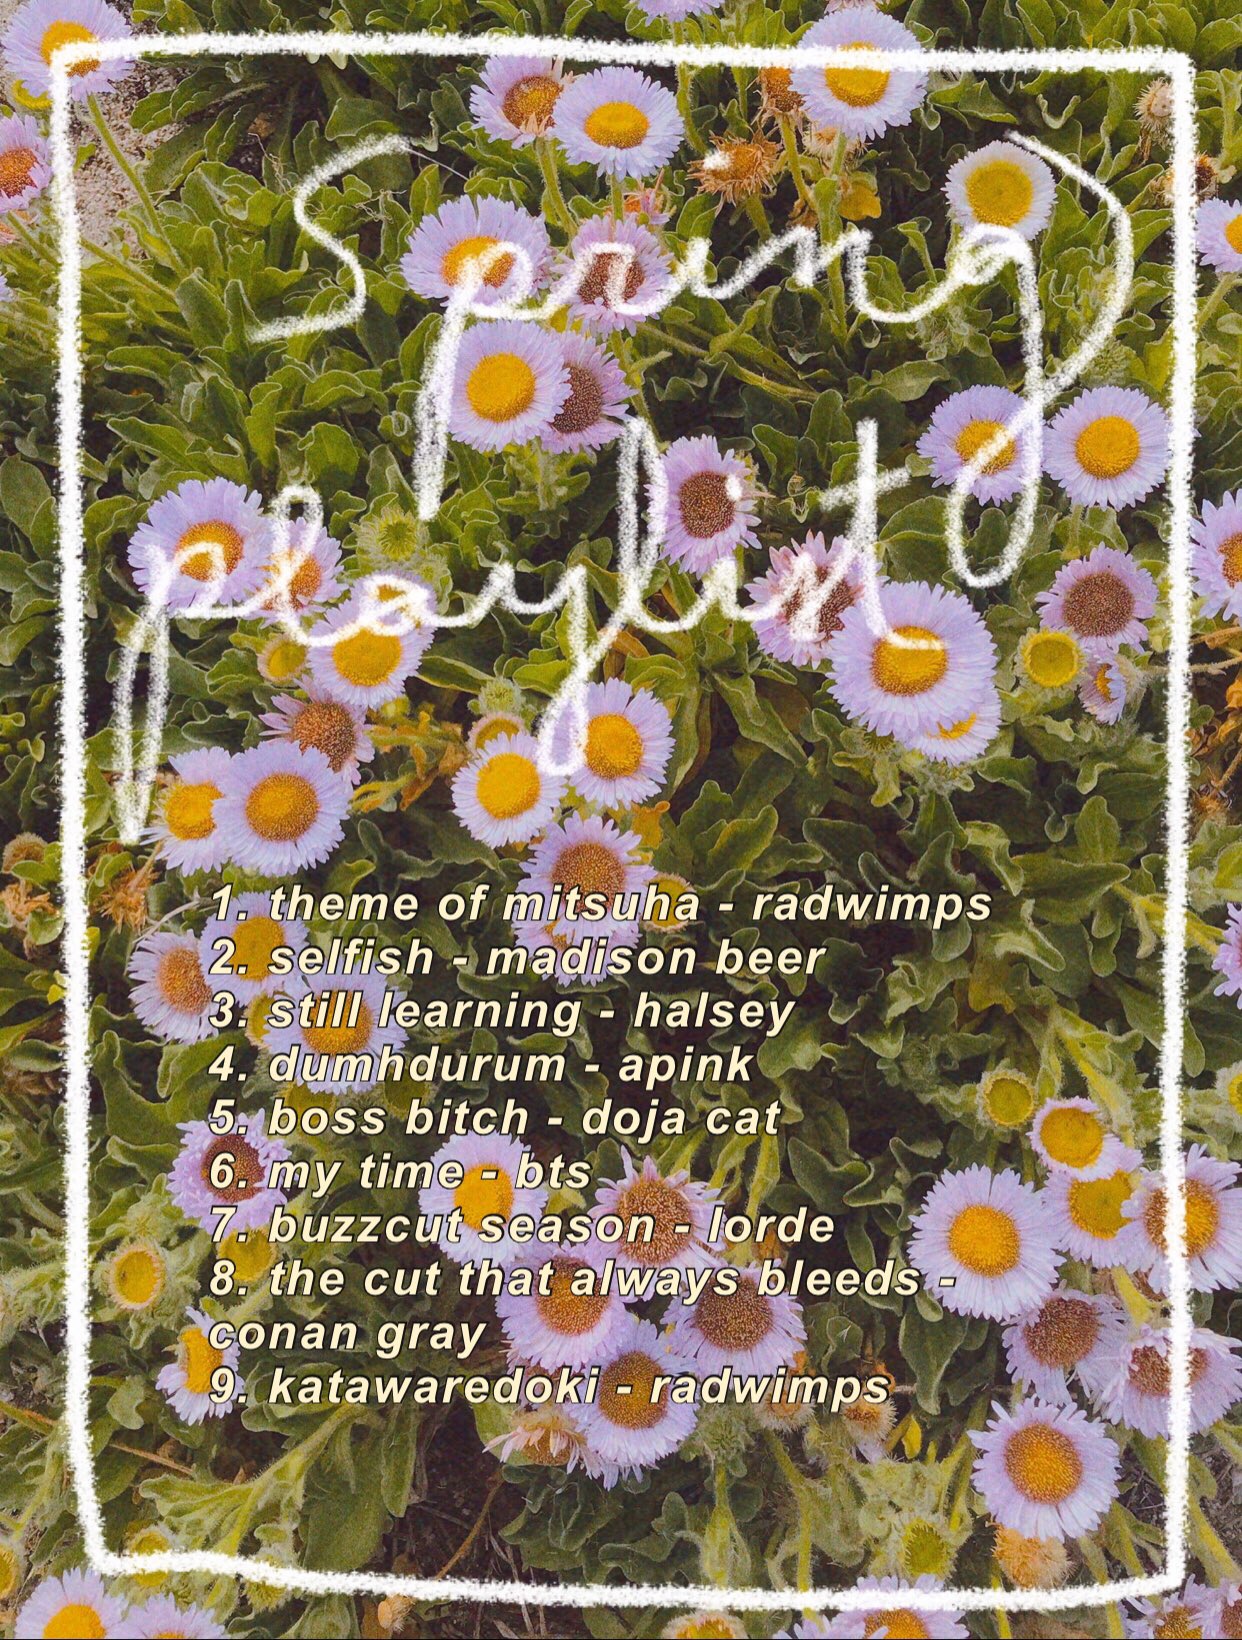 Spring
playlist
1. theme of mitsuha - radwimps
2. selfish - madison beer
3. still learning - halsey
4. dumhdurum - apink
5. boss bitch - doja cat
6. my time - bts
7. buzzcut season - lorde
8. the cut that always bleeds -
conan gray
9. katawaredoki - radwimps